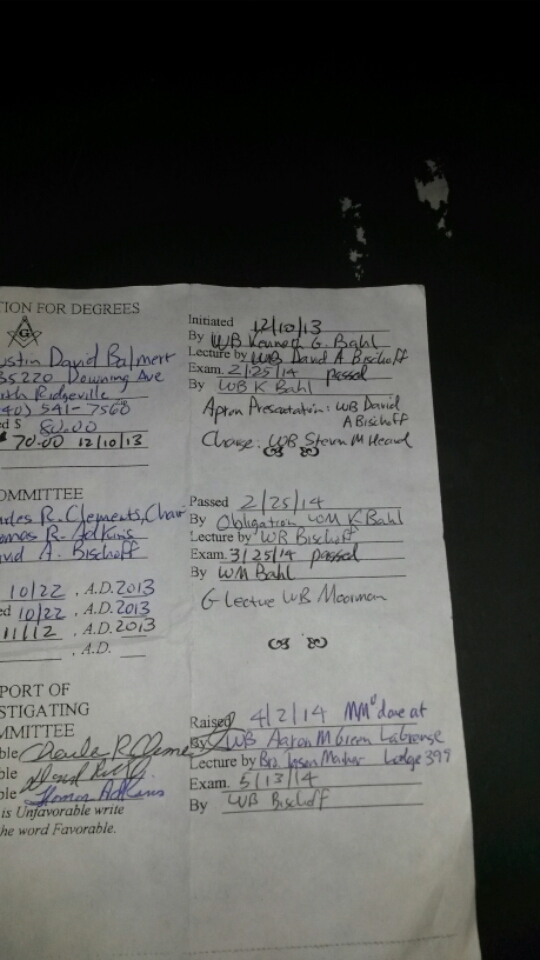 TION FOR DEGREES
G
ustin David Balmert
35220 Downing Ave
rth Ridgeville
40) 541-7560
ed $ 80.00
70.00 12/10/13
OMMITTEE
rles R. Clements, Chair
omas R. Adkins
vid A. Bischoff
10/22, A.D. 2013
ed 10/22, A.D. 2013
11/12, A.D. 2013
, A.D.
PORT OF
STIGATING
MMITTEE
ble
ble
ble Thomas Adkins
is Unfavorable write
he word Favorable.
Initiated 12/10/13
By WB Kenneth G. Bahl
Lecture by WB David A Bischoff
Exam. 2/25/14 passed
By WB K Bahl
Apron Presentation: WB David
A Bischoff
Charge: WB Steven M Heard
Passed 2/25/14
By Obligation WM K Bahl
Lecture by WB Bischoff
Exam. 3/25/14 passed
By WM Bahl
G Lecture WB Moorman
Raised 4/2/14 MM° done at
By WB Aaron M Green LaGrange
Lecture by Bro. Lodge 399
Exam. 5/13/14
By WB Bischoff